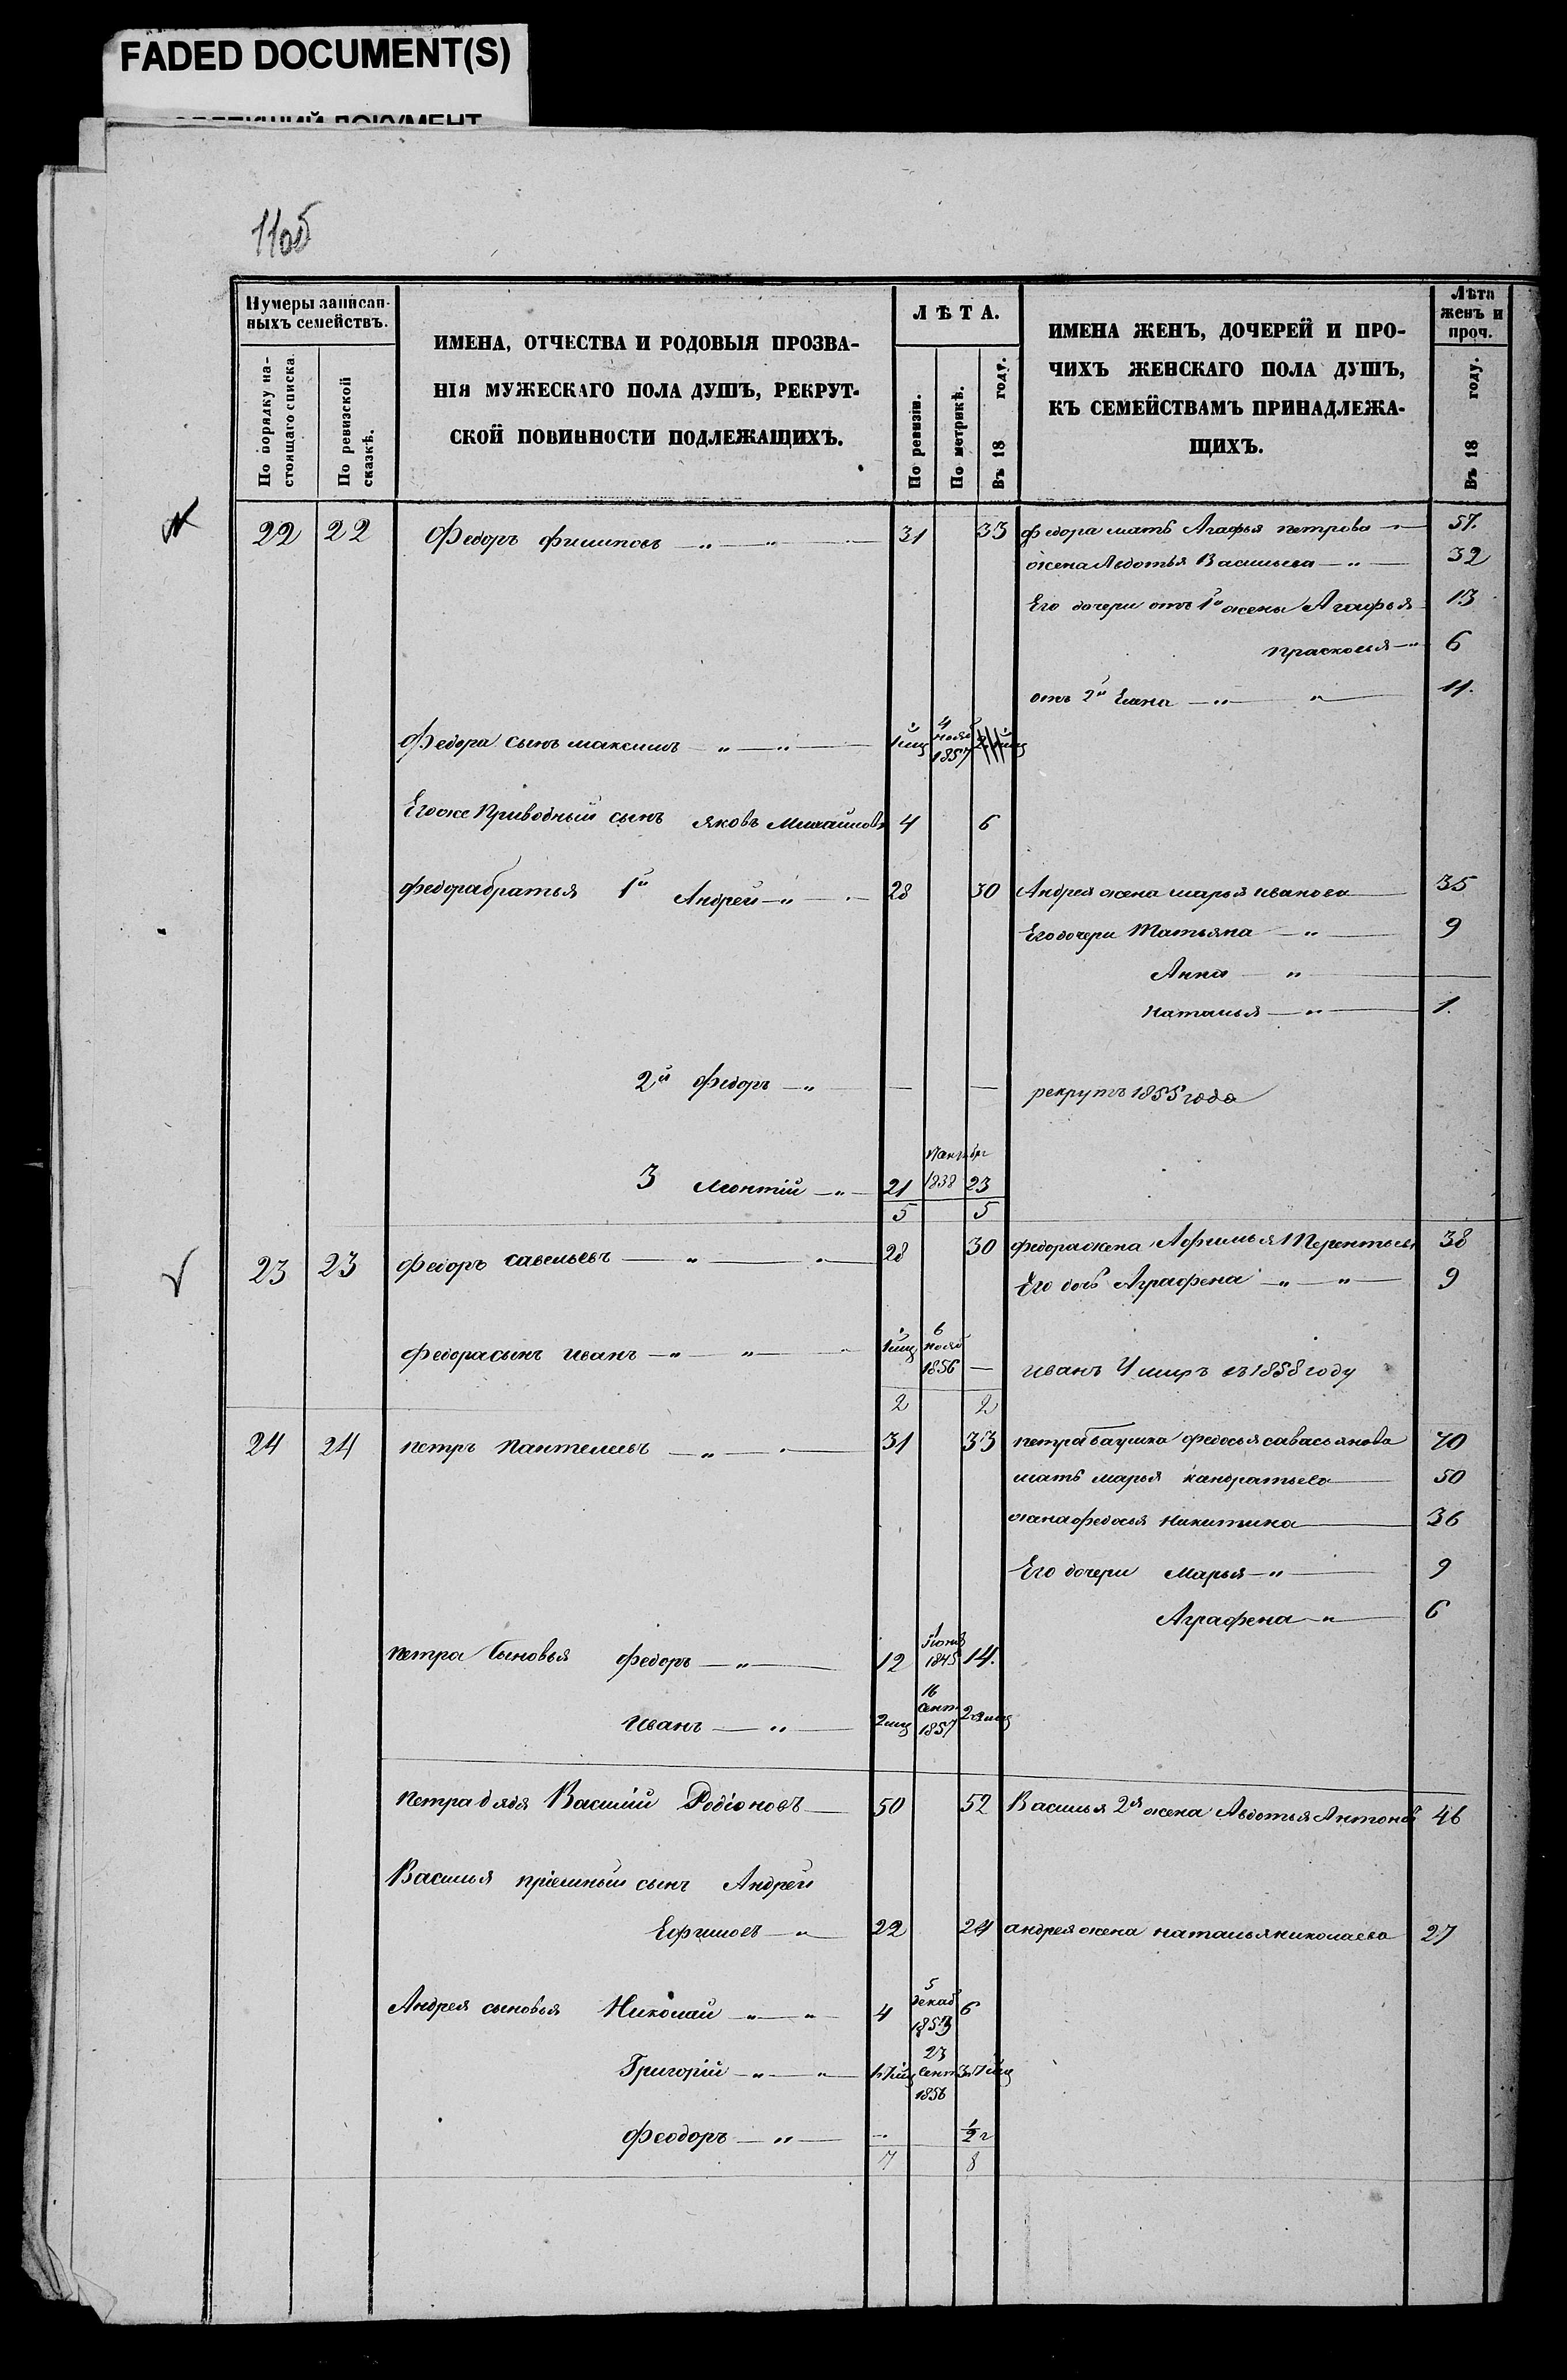 FADED DOCUMENT(S)
11об
Нумеры записанныхъ семействъ.
По порядку настоящаго списка.
По ревизской сказкѣ.
ИМЕНА, ОТЧЕСТВА И РОДОВЫЯ ПРОЗВА-
НІЯ МУЖЕСКАГО ПОЛА ДУШЪ, РЕКРУТ-
СКОЙ ПОВИННОСТИ ПОДЛЕЖАЩИХЪ.
ЛѢТА.
По ревизіи.
По метрикѣ.
Въ 18 году.
ИМЕНА ЖЕНЪ, ДОЧЕРЕЙ И ПРО-
ЧИХЪ ЖЕНСКАГО ПОЛА ДУШЪ,
КЪ СЕМЕЙСТВАМЪ ПРИНАДЛЕЖА-
ЩИХЪ.
Лѣта женъ и проч.
Въ 18 году.
22 22 Федоръ филиповъ — „ — „ — 31 33 федора мать Агафья петрова — 57.
жена Авдотья Васильева — „ — 32
Его дочери отъ 1й жены Агафья 13
прасковья — „ 6
отъ 2й Елена — „ — „ — 11.
Федора сынъ максимъ — „ — „ — 1 мц 4 нояб 1857
Егоже Приводный сынъ яковъ Михайловъ 4 6
федора братья 1й Андрей — „ — 28 30 Андрея жена марья иванова — 35
Его дочери Татьяна — „ — 9
Анна — „ —
Наталья — „ — 1.
2й Федоръ — „ — — — рекрутъ 1855 года
3 Леонтій — „ — 21 1838 23
5 5
23 23 федоръ савельевъ — „ — „ — 28 30 федора жена Афимья Терентьев 38
Его дочь Аграфена — „ — „ — 9
федора сынъ иванъ — „ — „ — 1 мц 6 нояб 1856 — иванъ Умиръ въ 1858 году
2 2
24 24 петръ Пантелеевъ — „ — 31 33 петра баушка федосья савасьянова 70
мать марья кандратьева — 50
жена федосья Никитина — 36
Его дочери Марья — „ — 9
Аграфена — „ — 6
петра Сыновья федоръ — „ — 12 1 1845 14.
Иванъ — „ — 2 мц 16 Сент 1857 2 2 мц
Петра дядя Василій Родіоновъ — 50 52 Василья 2я жена Авдотья Антонов 46
Василья пріемный сынъ Андрей
Ефимовъ — „ — 22 24 андрея жена наталья николаева 27
Андрея сыновья Николай — „ — „ — 4 5 декаб 1853 6
Григорій — „ — „ — 1 7 мц 23 Сент 1856 3 7 мц
Феодоръ — „ — — 1/2 г
7 8